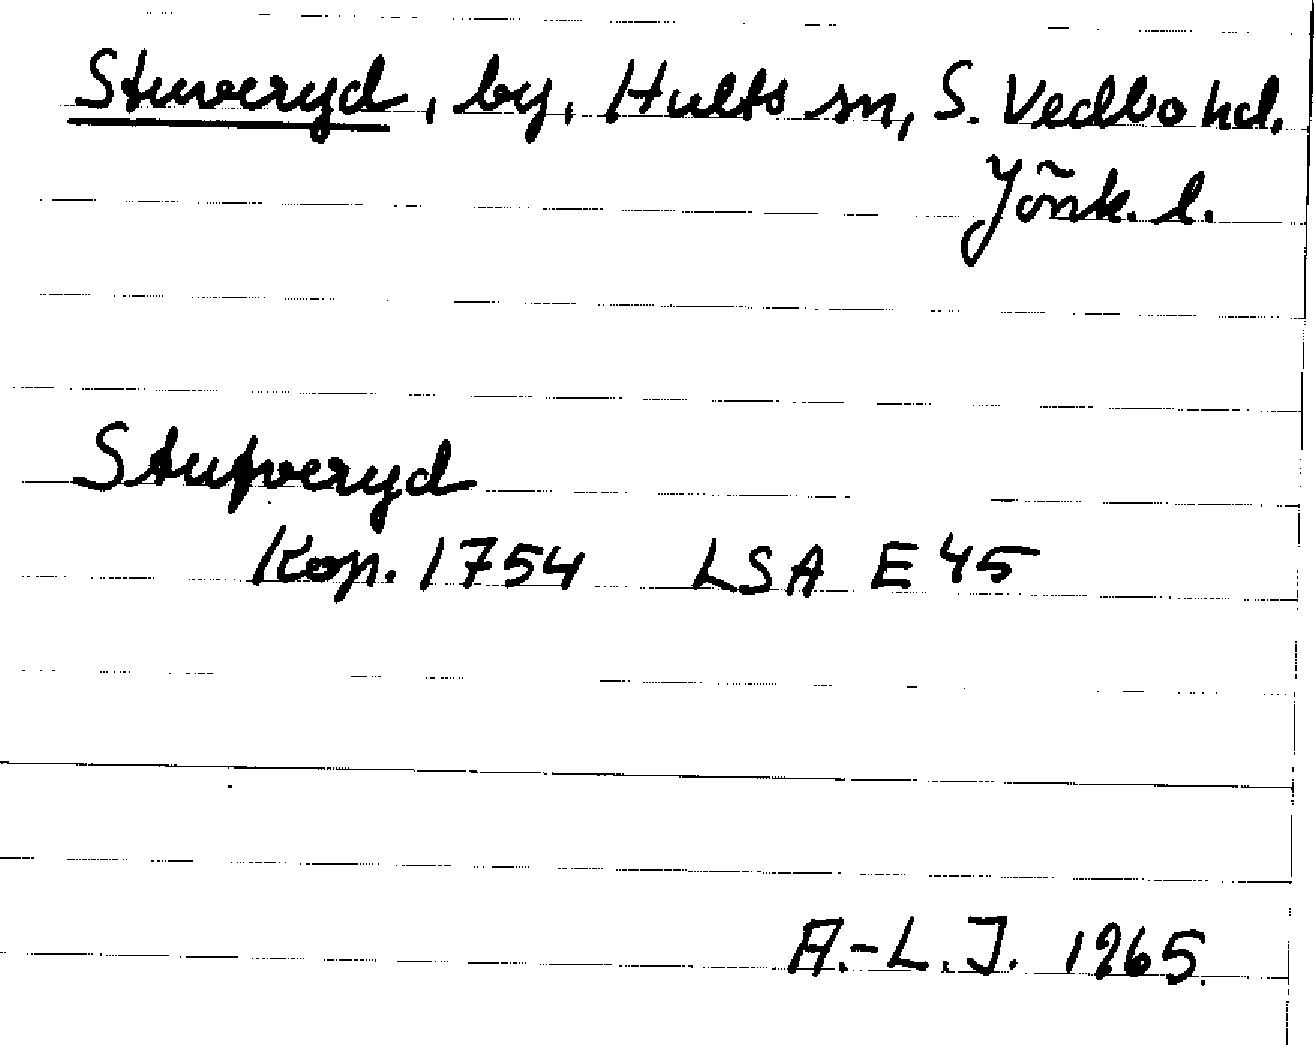 Stuveryd, by, Hults sn, S. Vedbo hd.
Jönk. l.
Stufveryd
Kop. 1754 LSA E 45
A.-L. J. 1965.